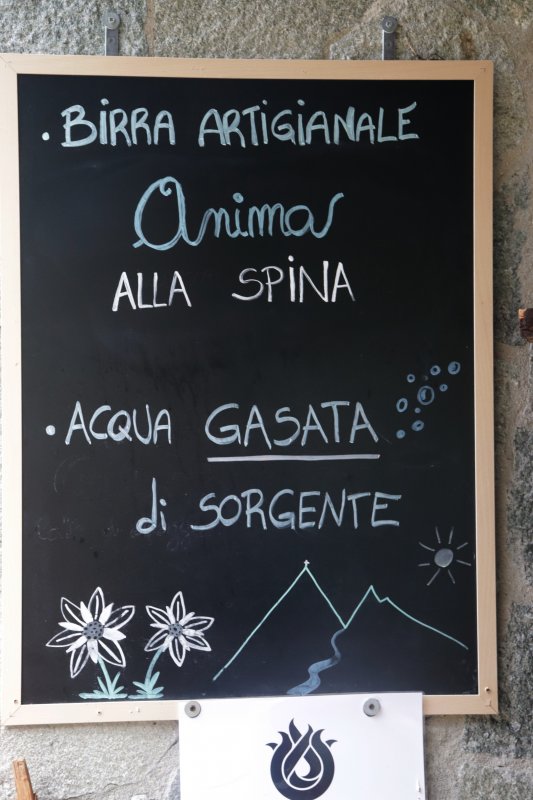 • BIRRA ARTIGIANALE
Anima
ALLA SPINA
• ACQUA GASATA
di SORGENTE